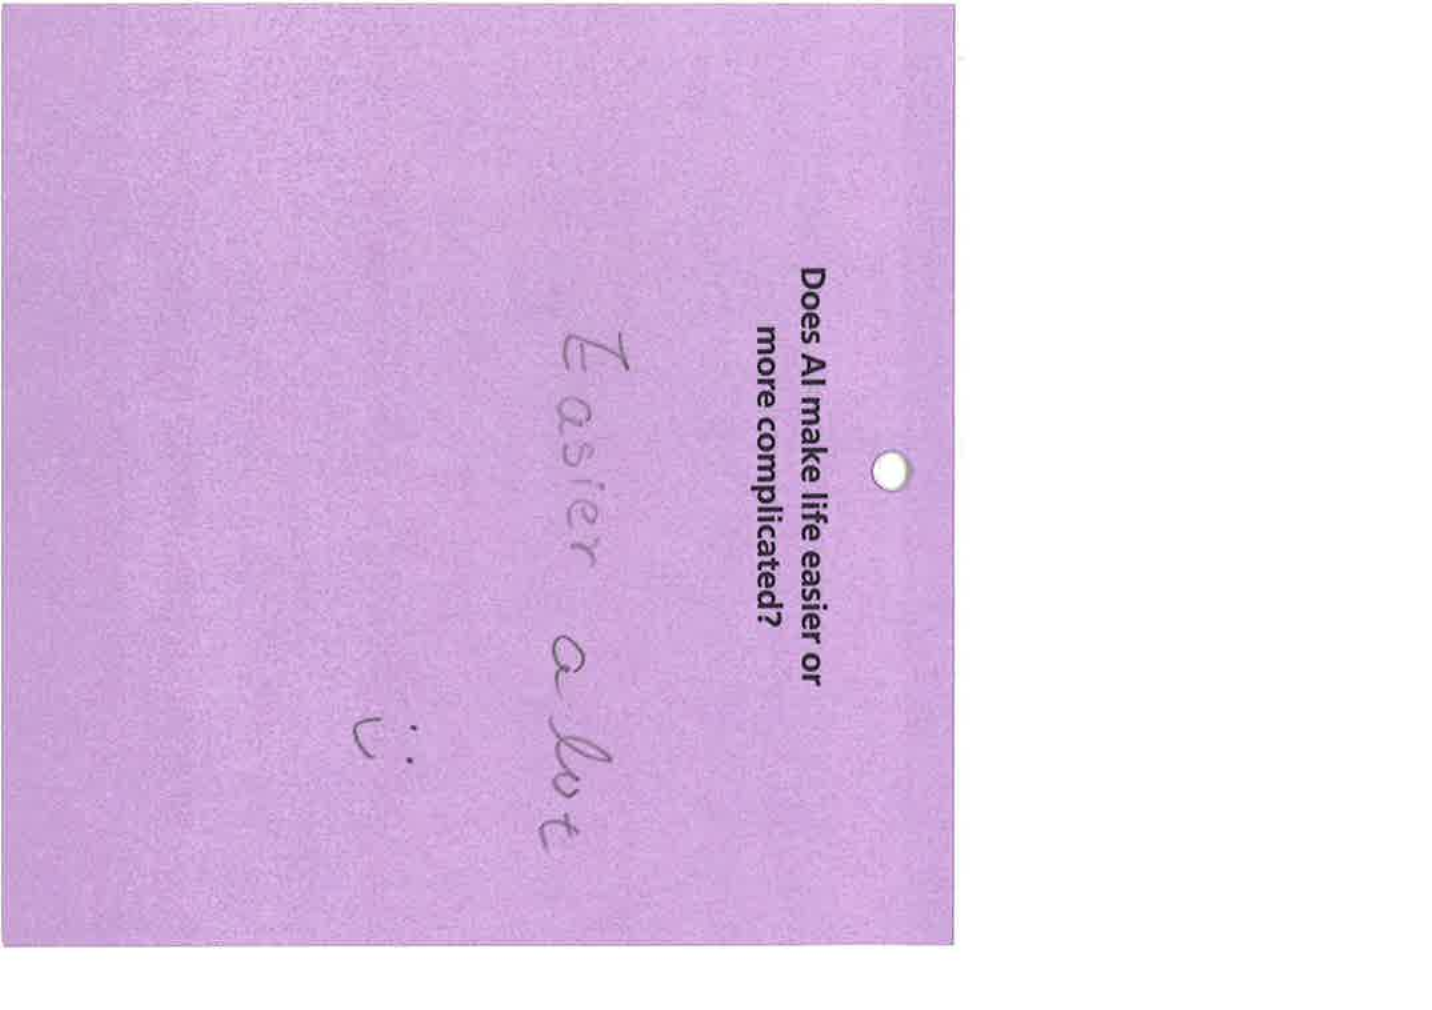 Does AI make life easier or
more complicated?
Easier a lot
:)